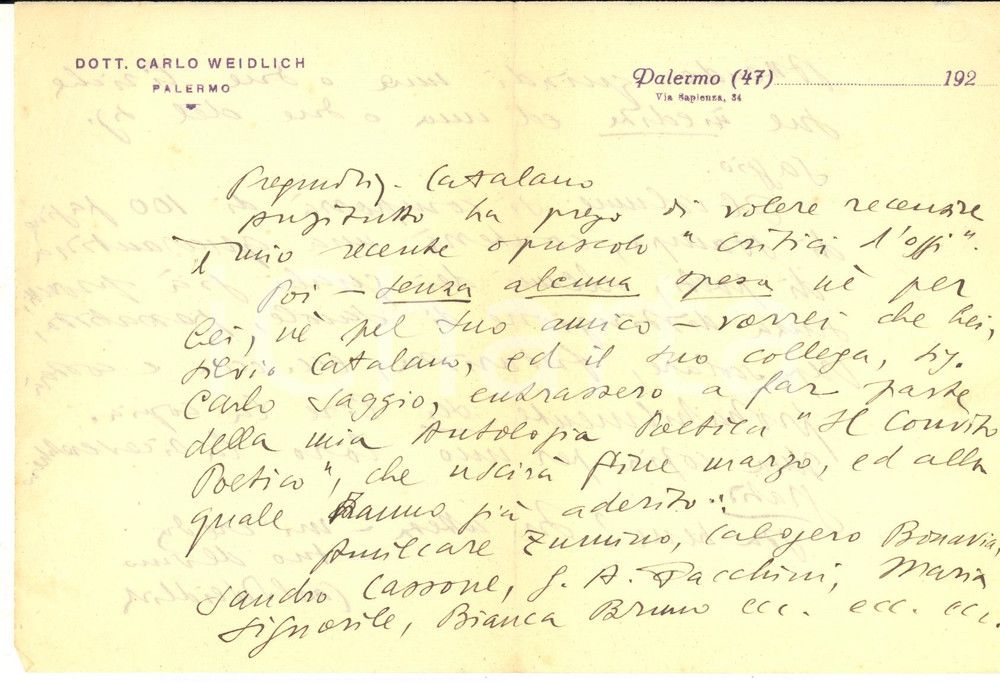 DOTT. CARLO WEIDLICH
PALERMO
Palermo (47) 192
Via Sapienza, 34
Catalano
anzitutto ha prego di volere recensire
il mio recente opuscolo "Critici d'oggi".
Poi – senza alcuna spesa nè per
Lei, nè pel suo amico – vorrei che Lei,
Silvio Catalano, ed il suo collega, sig.
Carlo Saggio, entrassero a far parte
della mia Antologia Poetica "Il Convito
Poetico", che uscirà fine marzo, ed alla
quale hanno già aderito:
Amilcare Zumino, Calogero Bonavia,
Sandro Cassone, G. A. Pacchini, Maria
Signorile, Bianca Bruno ecc. ecc. ecc.